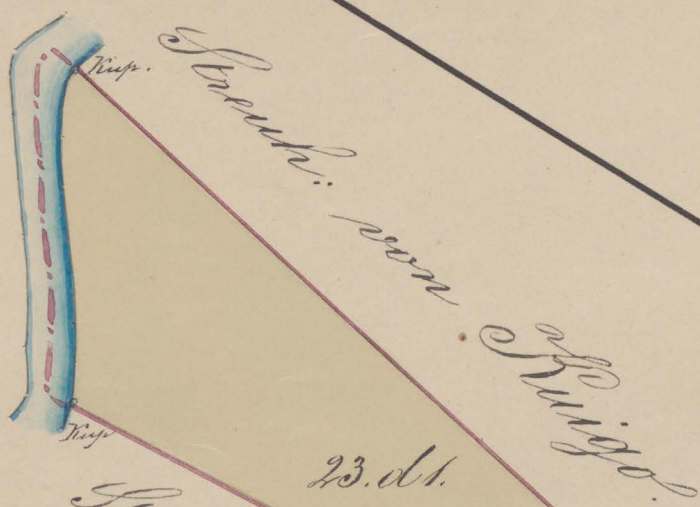 Kup.
Streuh: von Kuigo.
Kup
23. d1.